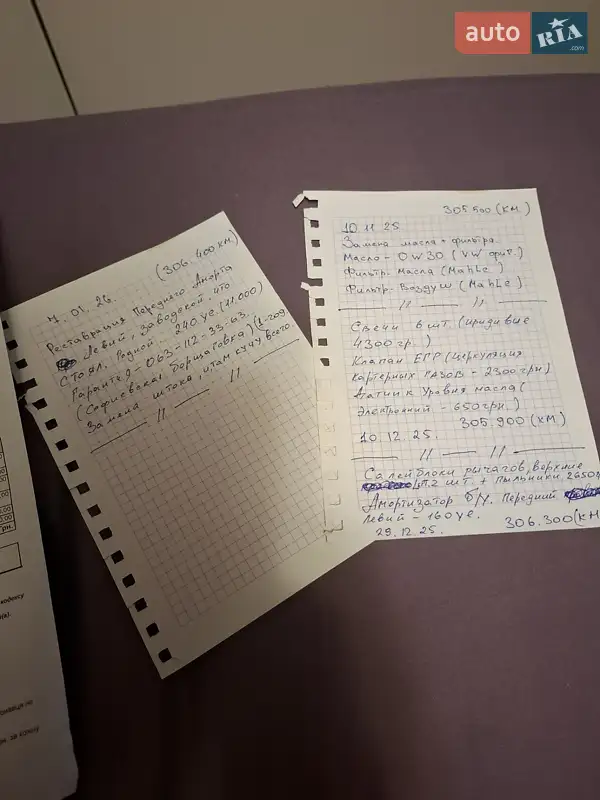 auto RIA .com
(306.400 км)
4.01.26.
Реставрация Переднего Аморта
Левий, заводской, что
Стоял. Родной - 240 уе. (11.000)
Гарантед - 063-112-33-63.
(Софиевская Борщаговка) (1-год)
Замена штока, и там кучу всего.
— // — // —
305.900 (км)
10.11.25
Замена масла + фильтра.
Масло - 0W30 (VW ориг.)
Фильтр. масла (Mahle)
Фильтр. Воздуш (Mahle)
— // — // —
Свечи 6 шт. (иридивые
4300 гр.)
Клапан ЕГР (Циркуляция
картерных газов - 2300грн)
Датчик Уровня масла (
Электронний - 650грн.)
10.12.25. 305.900 (км)
— // — // —
Салейблоки рычагов, верхние
П. 2 шт. + пыльники. 2650
Амортизатор Б/У. Передний
Левий - 160 уе.
29.12.25. 306.300 (км
грн.